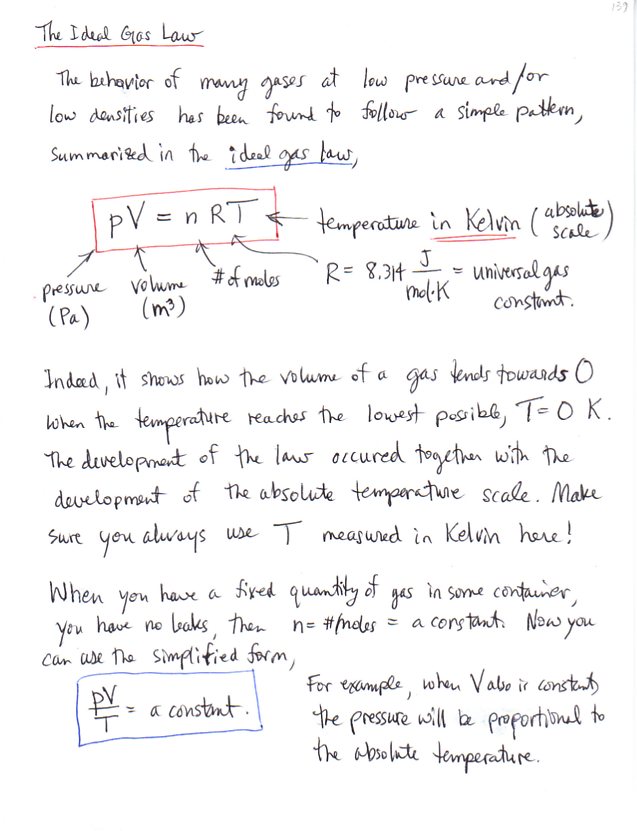 139
The Ideal Gas Law
The behavior of many gases at low pressure and/or
low densities has been found to follow a simple pattern,
summarized in the ideal gas law,
pV = n RT ← temperature in Kelvin (absolute scale)
pressure (Pa)
volume (m³)
# of moles
R = 8.314 J/mol·K = universal gas
constant.
Indeed, it shows how the volume of a gas tends towards 0
when the temperature reaches the lowest possible, T = 0 K.
The development of the law occured together with the
development of the absolute temperature scale. Make
sure you always use T measured in Kelvin here!
When you have a fixed quantity of gas in some container,
you have no leaks, then n = #moles = a constant. Now you
can use the simplified form,
pV/T = a constant.
For example, when V also is constant,
the pressure will be proportional to
the absolute temperature.